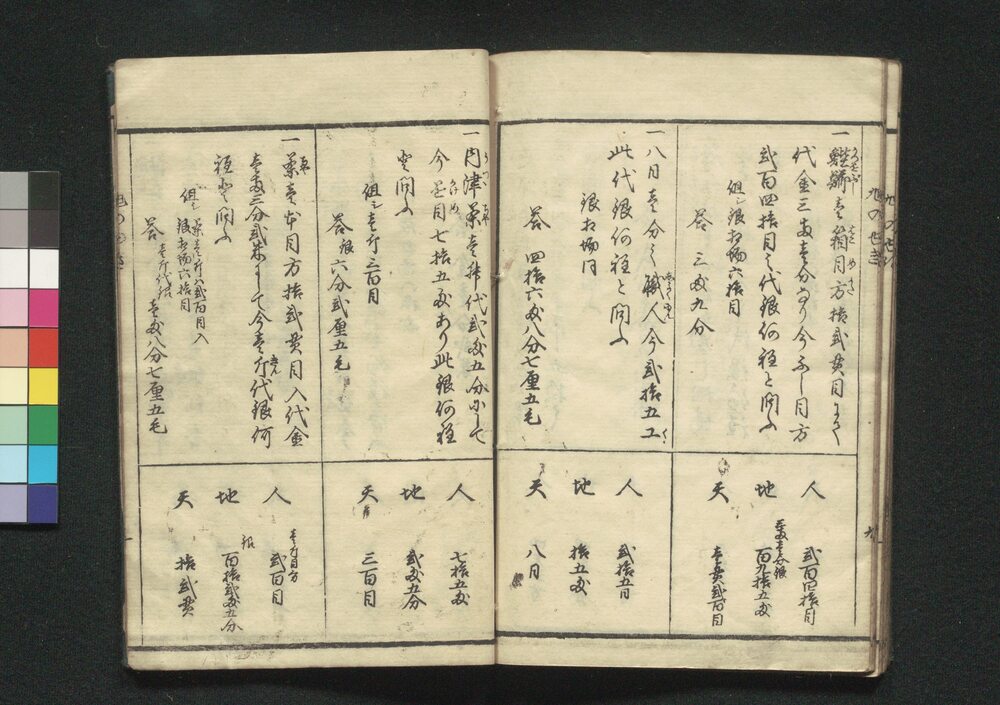 代金三両壱分なり今ふし目方
弐百四拾目之代銀何程と問ふ
但シ銀相場六拾目
答 三匁九分
人 弐百四拾目
地 三両壱分銀
百九拾五匁
天 壱貫弐百目
一八月壱分之職人今弐拾五工
此代銀何程と問ふ
銀相場同
答 四拾六匁八分七厘五毛
人 弐拾五日
地 拾五匁
天 八日
一内津茶壱斤代弐匁五分にして
今茶目七拾五匁あり此銀何程
と問ふ
但シ壱斤三百目
答 銀六分弐厘五毛
人 七拾五匁
地 弐匁五分
天 三百目
一茶壱本目方拾弐貫目入代金
壱両三分弐朱にして今壱斤代銀何
程と問ふ
但シ茶壱斤ハ弐百目入
銀相場六拾目
答 壱斤代銀 壱匁八分七厘五毛
人 壱斤目方
弐百目
地 銀
百拾弐匁五分
天 拾弐貫